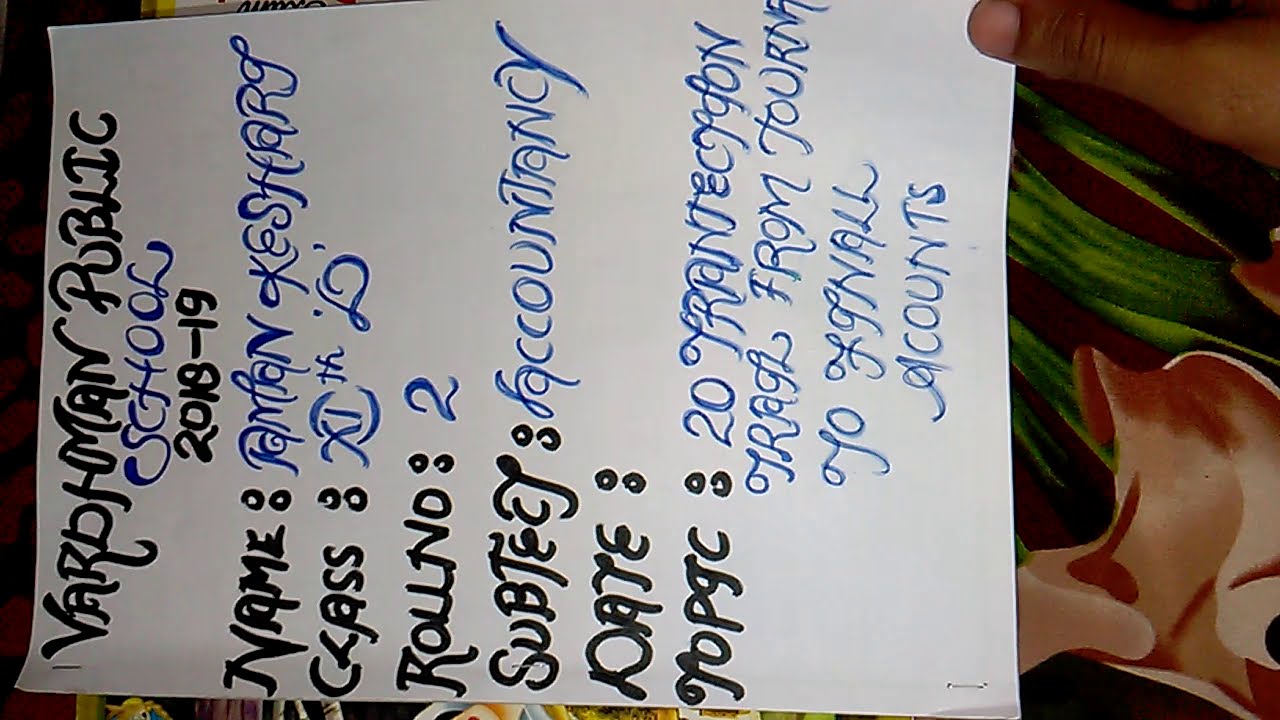 VARDHMAN PUBLIC
SCHOOL
2018-19
NAME : AMAN KESHARI
CLASS : XI th 'D'
ROLLNO : 2
SUBJECT : ACCOUNTANCY
DATE :
TOPIC : 20 TRANTECTION
TRAIL FROM JOURNA
TO FINALL
ACOUNTS